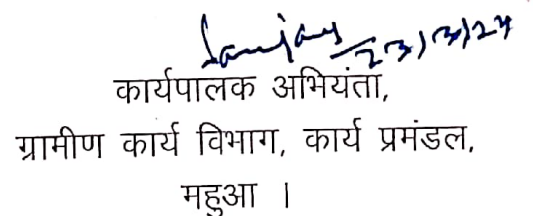 Sanjay 23/3/24
कार्यपालक अभियंता,
ग्रामीण कार्य विभाग, कार्य प्रमंडल,
महुआ ।